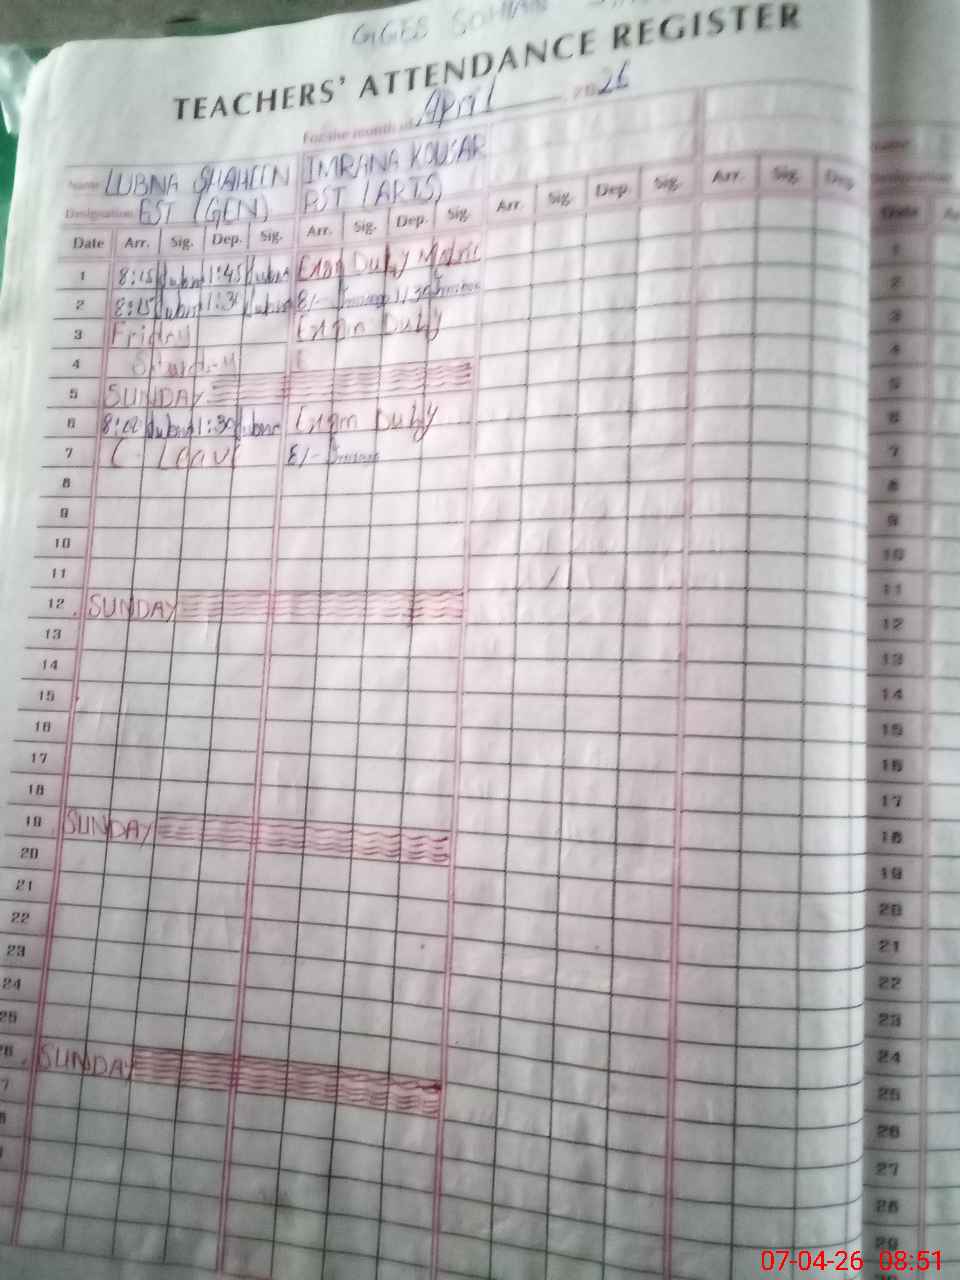 GGES SOHIAN
TEACHERS' ATTENDANCE REGISTER
For the month of April 2026
Name LUBNA SHAHEEN IMRANA KOUSAR
Designation EST (GEN) PST (ARTS)
Date Arr. Sig. Dep. Sig. Arr. Sig. Dep. Sig. Arr. Sig. Dep. Sig. Arr. Sig. Dep.
1 8:15 Lubna 1:45 Lubna Exam Duty Matric
2 8:15 Lubna 1:30 Lubna 8/- 1:30
3 Friday Exam Duty
4
5 SUNDAY
6 Lubna 1:30 Lubna Exam Duty
7 C. Leave 8/-
8
9
10
11
12 SUNDAY
13
14
15
16
17
18
19 SUNDAY
20
21
22
23
24
25
26 SUNDAY
7
Designation
Date
1
2
3
4
5
6
7
8
9
10
11
12
13
14
15
16
17
18
19
20
21
22
23
24
25
26
27
28
29
07-04-26 08:51